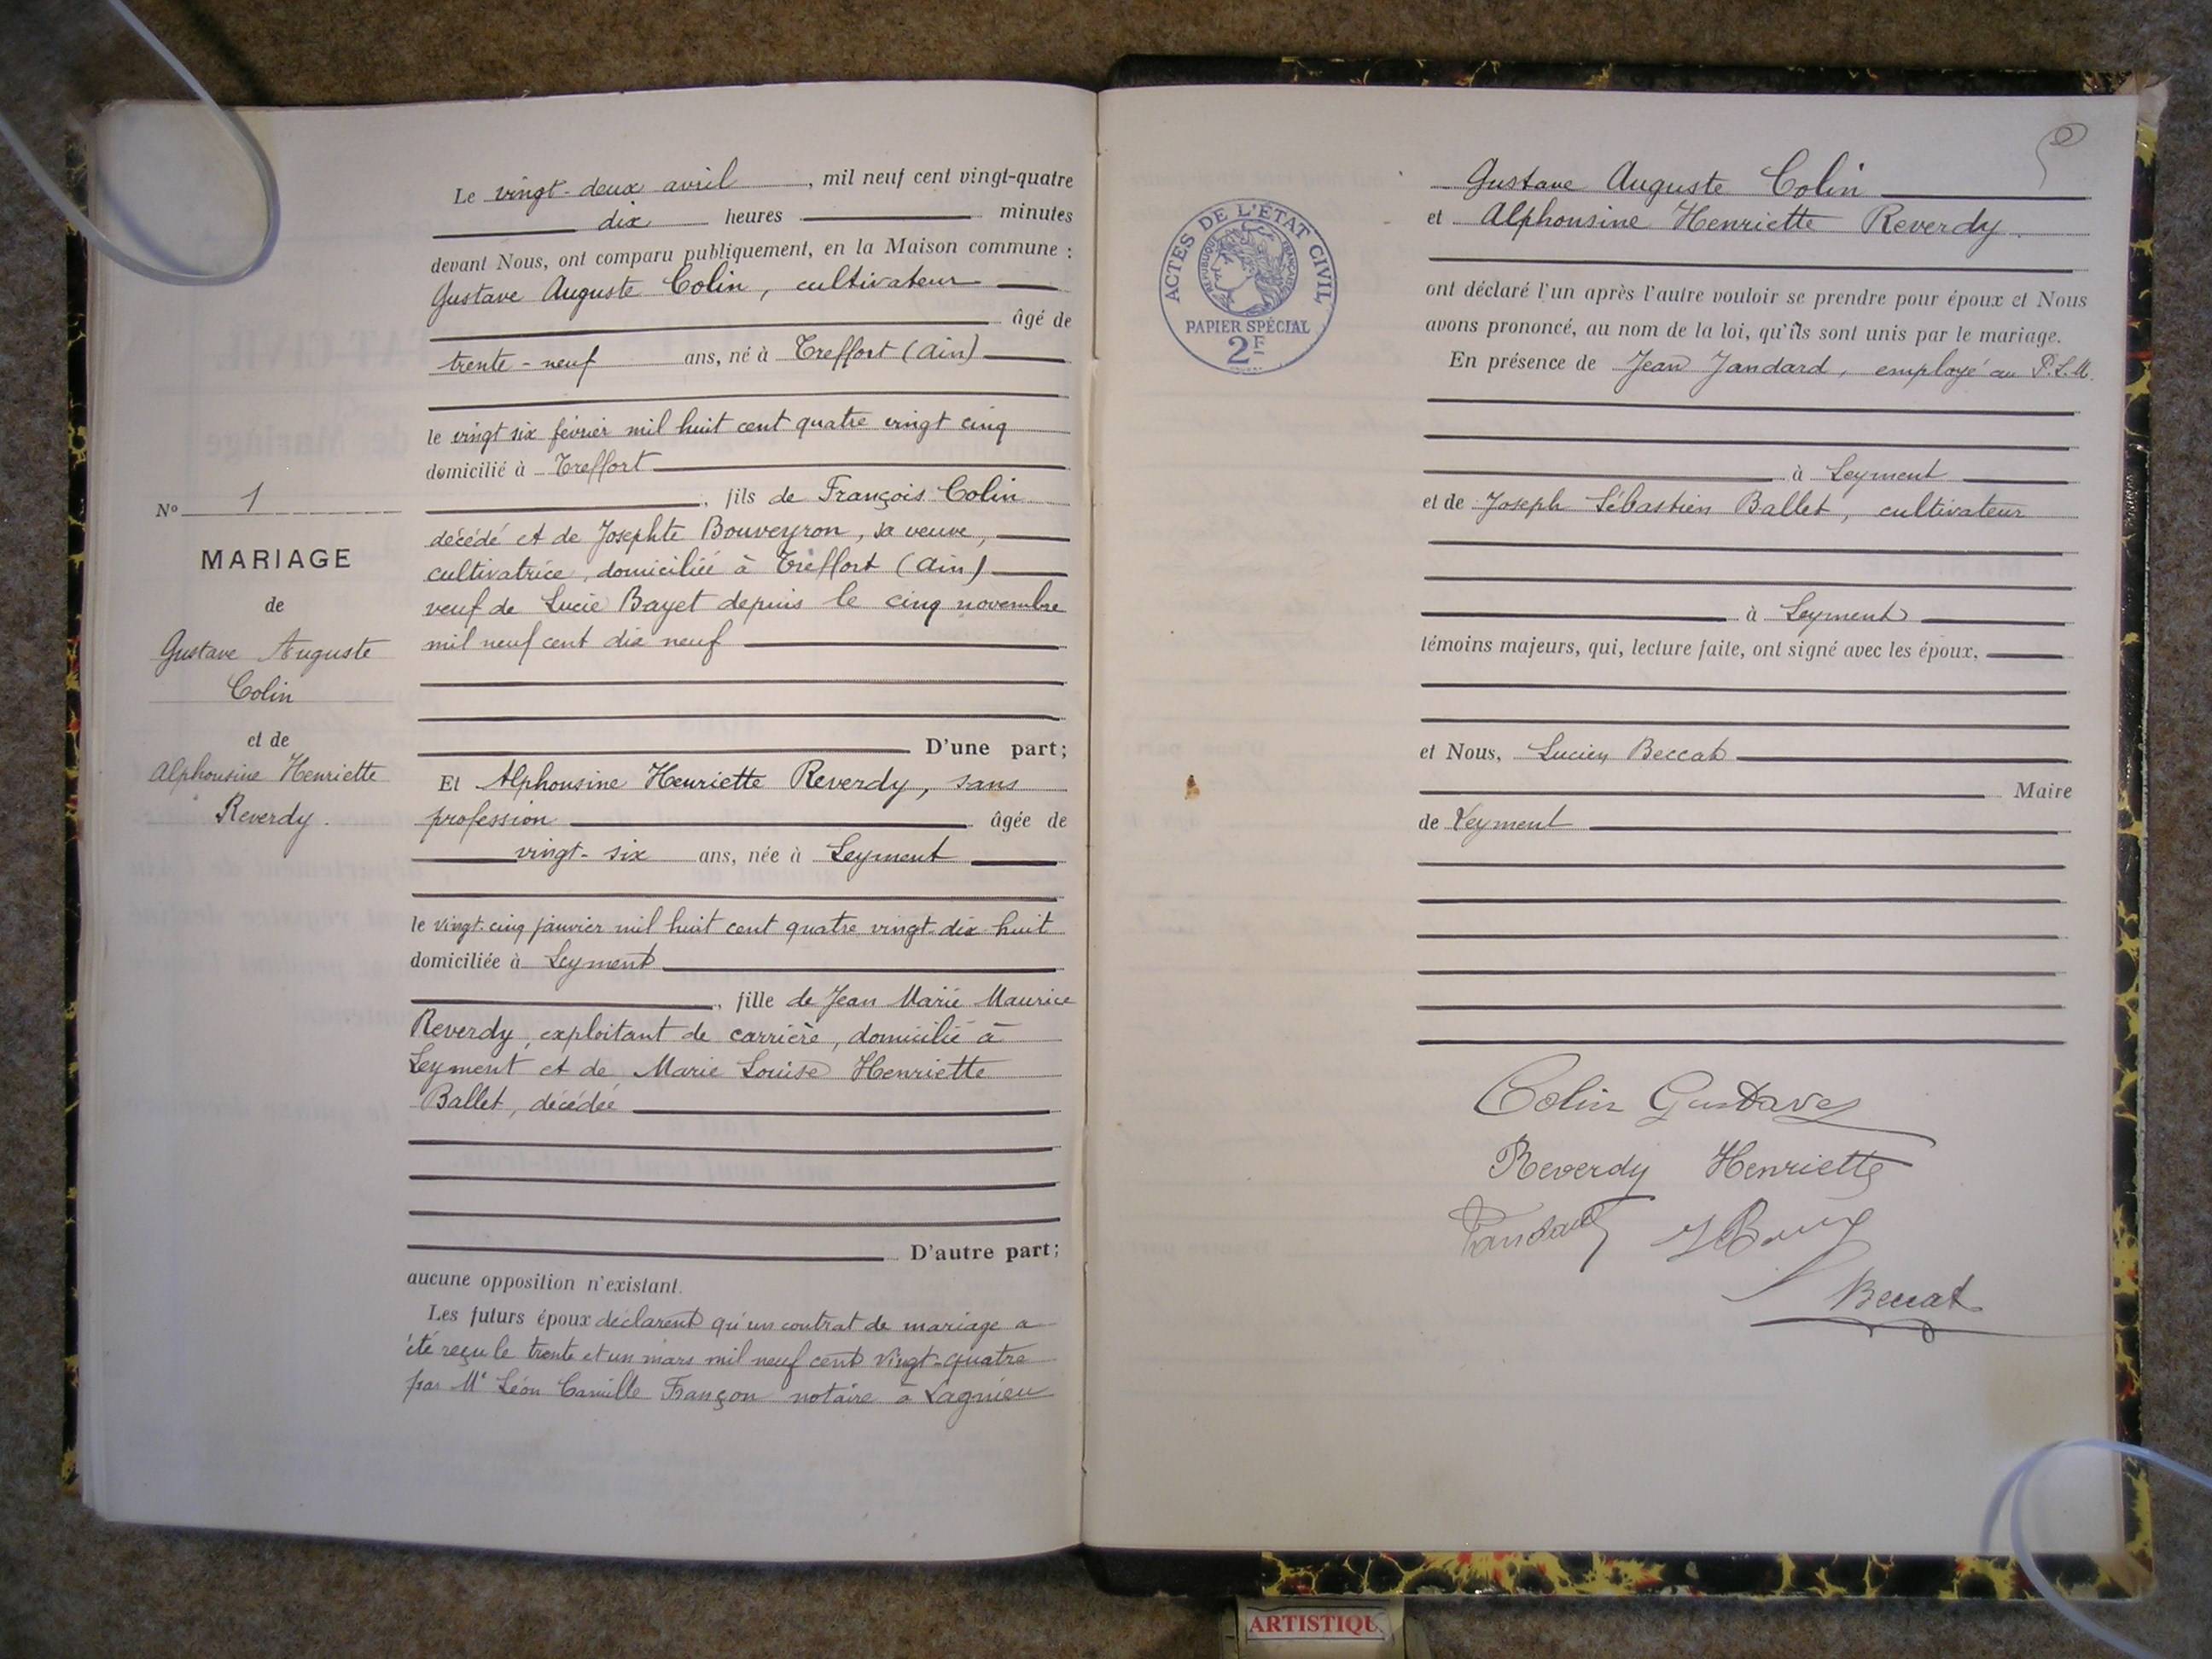 Le vingt-deux avril, mil neuf cent vingt-quatre
dix heures minutes
devant Nous, ont comparu publiquement, en la Maison commune :
Gustave Auguste Colin, cultivateur
âgé de
trente-neuf ans, né à Treffort (Ain)
le vingt six février mil huit cent quatre vingt cinq
domicilié à Treffort
, fils de François Colin
décédé et de Josephte Bouveyron, sa veuve,
cultivatrice, domiciliée à Treffort (Ain)
veuf de Lucie Bayet depuis le cinq novembre
mil neuf cent dix neuf
D'une part;
Nº 1
MARIAGE
de
Gustave Auguste
Colin
et de
Alphonsine Henriette
Reverdy.
Et Alphonsine Henriette Reverdy, sans
profession âgée de
vingt-six ans, née à Leyment
le vingt-cinq janvier mil huit cent quatre vingt-dix huit
domiciliée à Leyment
, fille de Jean Marie Maurice
Reverdy, exploitant de carrière, domicilié à
Leyment et de Marie Louise Henriette
Ballet, décédée
D'autre part;
aucune opposition n'existant.
Les futurs époux déclarent qu'un contrat de mariage a
été reçu le trente et un mars mil neuf cent vingt-quatre
par Me Léon Camille Françon notaire à Lagnieu
ACTES DE L'ÉTAT CIVIL
RÉPUBLIQUE FRANÇAISE
PAPIER SPÉCIAL
2F
Gustave Auguste Colin
et Alphonsine Henriette Reverdy.
ont déclaré l'un après l'autre vouloir se prendre pour époux et Nous
avons prononcé, au nom de la loi, qu'ils sont unis par le mariage.
En présence de Jean Jandard, employé au P.L.M.
à Leyment
et de Joseph Sébastien Ballet, cultivateur
à Leyment
témoins majeurs, qui, lecture faite, ont signé avec les époux,
et Nous, Lucien Beccat
Maire
de Leyment
Colin Gustave
Reverdy Henriette
Jandard
Beccat
ARTISTIQU